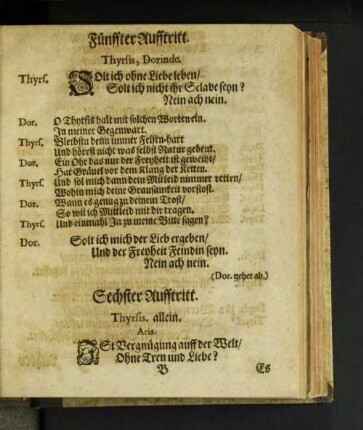 Fünffter Aufftritt.
Thyrsis, Dorinde.
Thyrs. SOlt ich ohne Liebe leben/
Solt ich nicht ihr Sclave seyn?
Nein ach nein.
Dor. O Thyrsis halt mit solchen Worten ein.
In meiner Gegenwart.
Thyrs. Bleibstu denn immer Felsen-hart
Und hörest nicht was selbst Natur gebeut.
Dor. Ein Ohr das nur der Freyheit ist geweiht/
Hat Gräuel vor dem Klang der Ketten.
Thyrs. Und sol mich dann dein Mitleid nimmer retten/
Wohin mich deine Grausamkeit vorstost.
Dor. Wann es genug zu deinem Trost/
So wil ich Mittleid mit dir tragen.
Thyrs. Und einmahl Ja zu meine Bitte sagen?
Dor. Solt ich mich der Lieb ergeben/
Und der Freyheit Feindin seyn.
Nein ach nein.
(Dor. gehet ab.)
Sechster Aufftritt.
Thyrsis. allein.
Aria.
ISt Vergnügung auff der Welt/
Ohne Treu und Liebe?
B Es